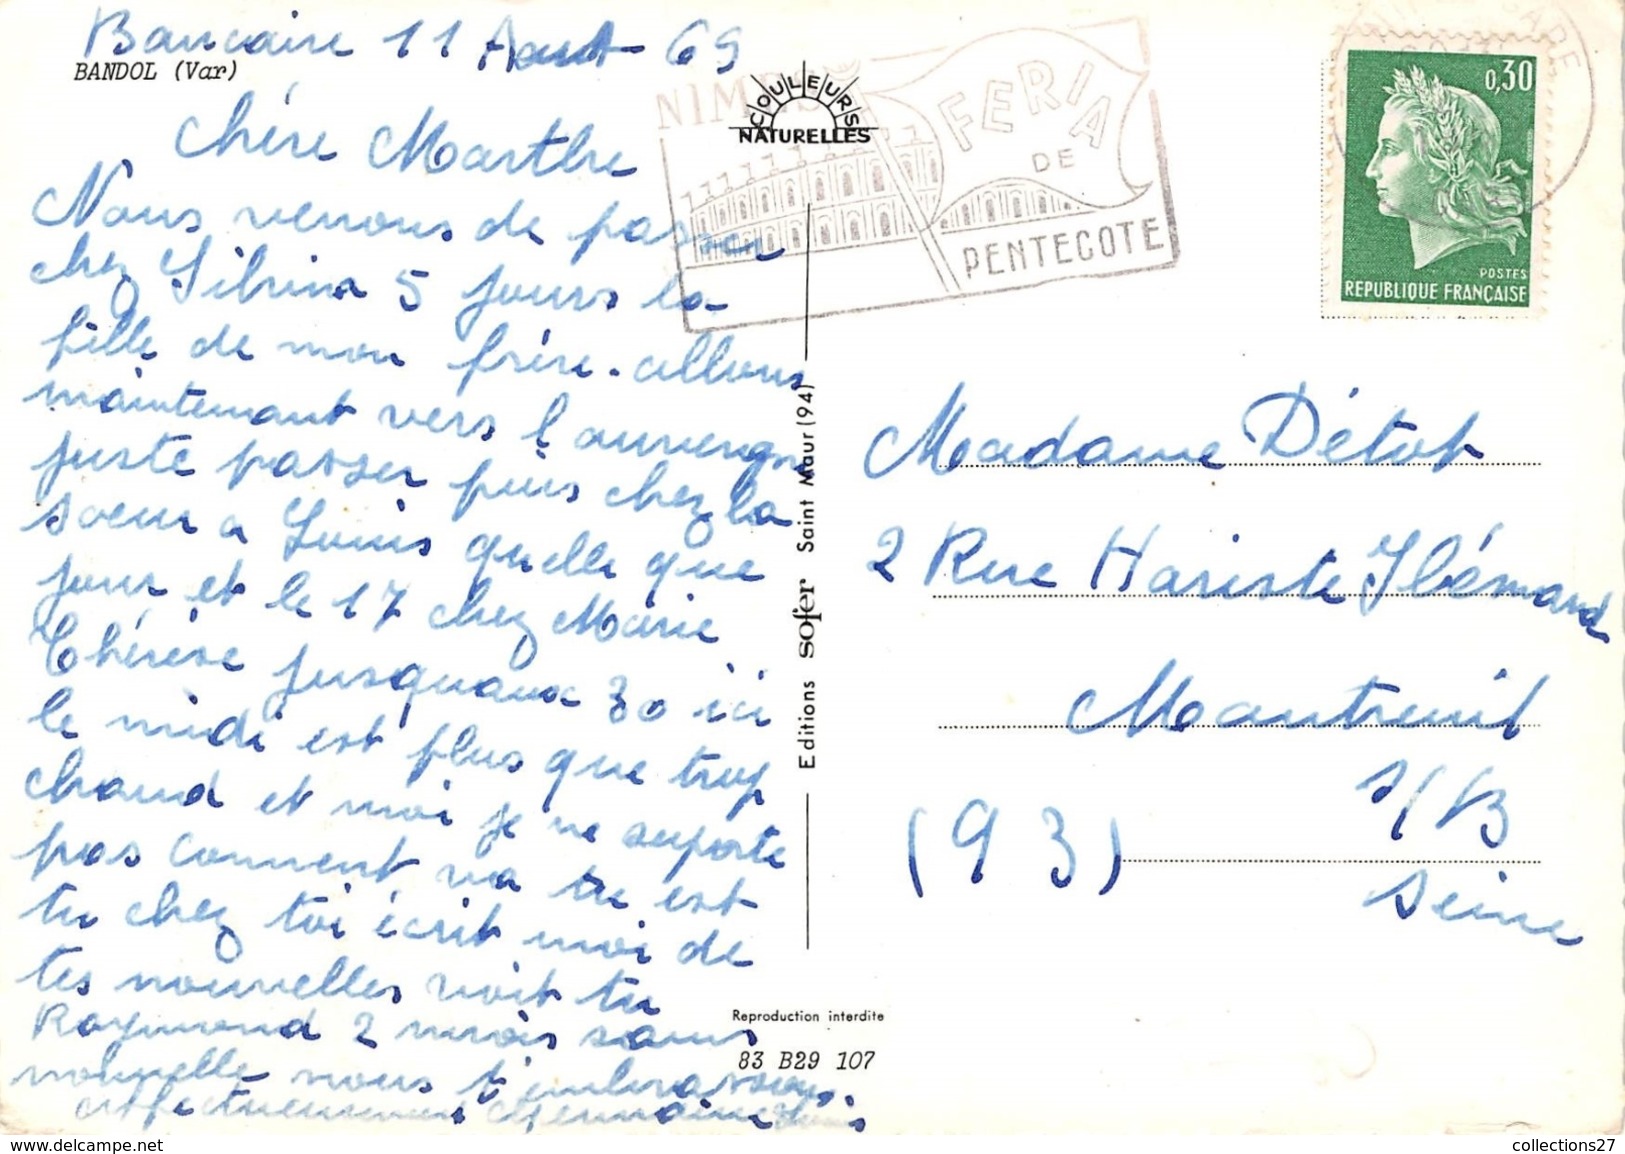 Baucaire 11 Aout 69
BANDOL (Var)
Chére Marthe
Nous venons de passer
chez Silvina 5 jours la
fille de mon frére. allons
maintenant vers l'auvergne
juste passer puis chez la
soeur a Louis quelle que
jour et le 17 chez Marie
Thérèse jusquaux 30 ici
le midi est plus que trop
chaud et moi je ne suporte
pas comment va tu est
tu chez toi écrit moi de
tes nouvelles voit tu
Raymond 2 mois sans
nouvelle nous t'embrassons
affectueusement Germaine Louis
COULEURS
NATURELLES
NIMES
FERIA
DE
PENTECOTE
GARE
0,30
POSTES
REPUBLIQUE FRANÇAISE
Editions sofer Saint Maur (94)
Madame Détot
2 Rue Hariste Hémard
Montreuil
s/B
(93)
Seine
Reproduction interdite
83 B29 107
collections27
www.delcampe.net